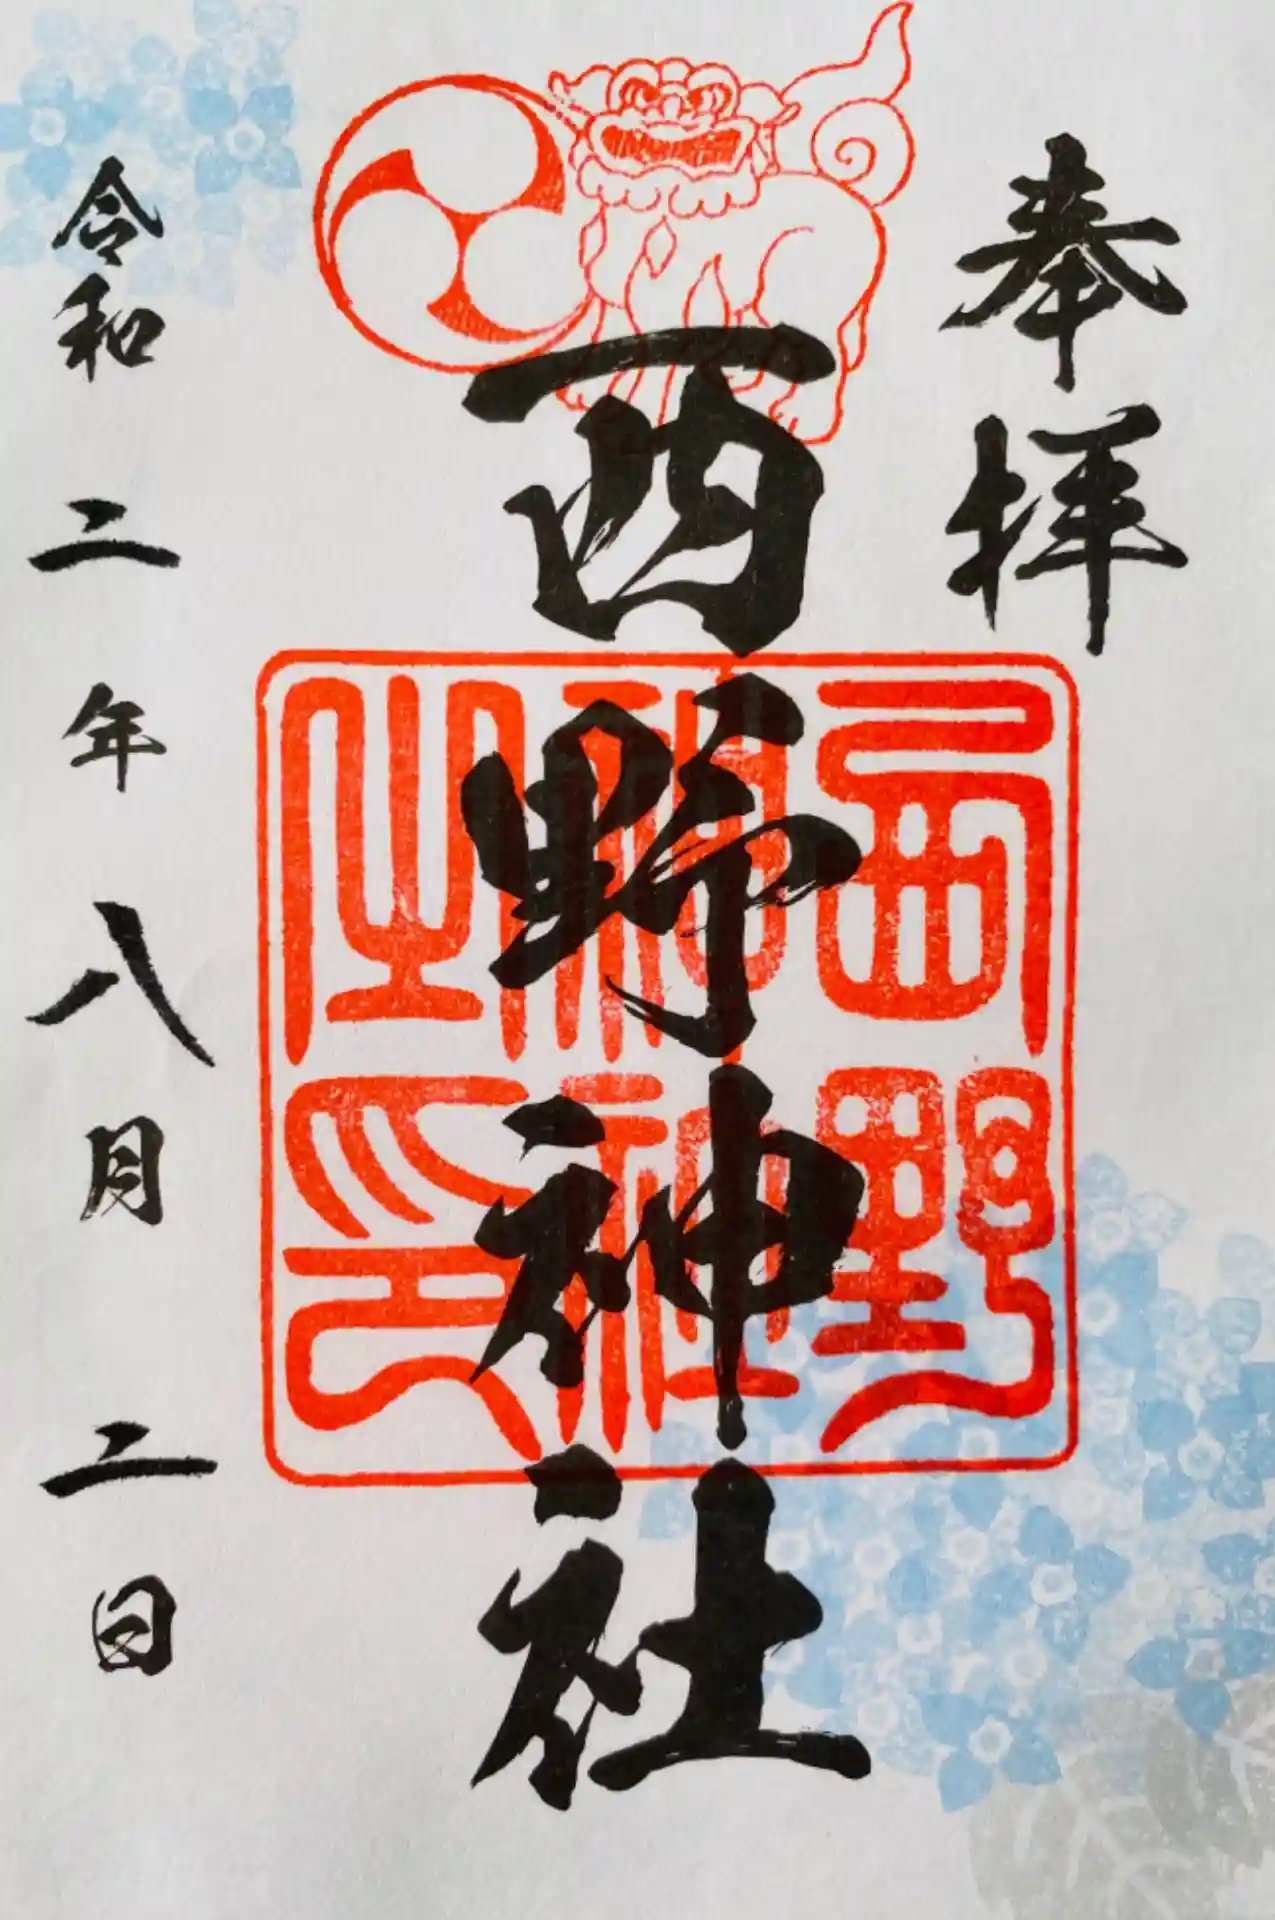 奉拝
西野神社
西野神社之印
令和二年八月二日